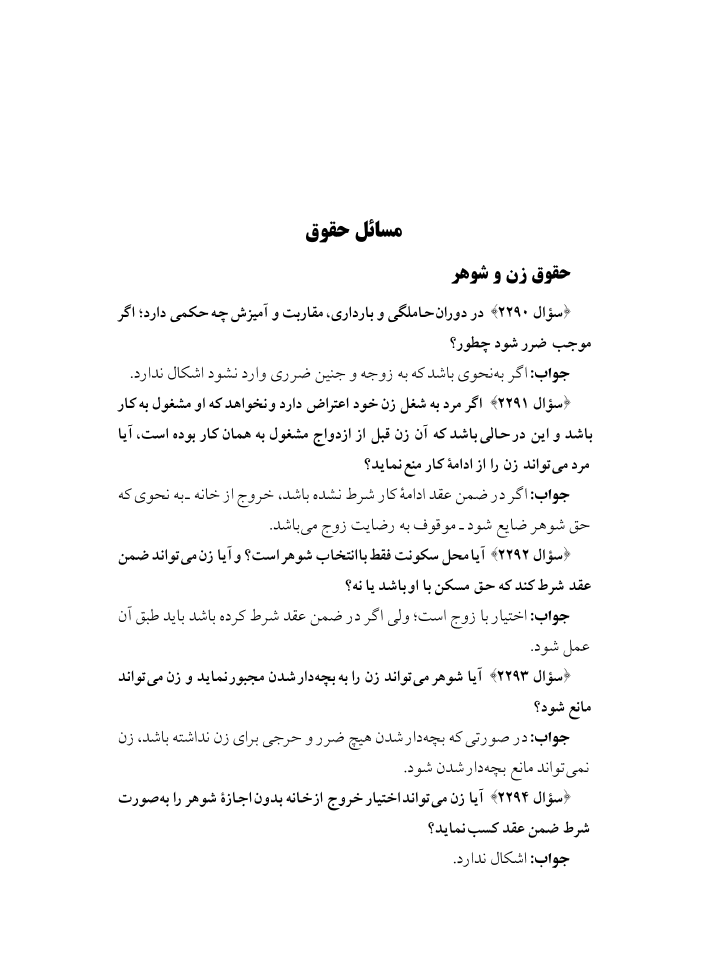 مسائل حقوق
حقوق زن و شوهر
﴿سؤال ۲۲۹۰﴾ در دوران حاملگی و بارداری، مقاربت و آمیزش چه حکمی دارد؛ اگر
موجب ضرر شود چطور؟
جواب: اگر به‌نحوی باشد که به زوجه و جنین ضرری وارد نشود اشکال ندارد.
﴿سؤال ۲۲۹۱﴾ اگر مرد به شغل زن خود اعتراض دارد و نخواهد که او مشغول به کار
باشد و این در حالی باشد که آن زن قبل از ازدواج مشغول به همان کار بوده است، آیا
مرد می‌تواند زن را از ادامهٔ کار منع نماید؟
جواب: اگر در ضمن عقد ادامهٔ کار شرط نشده باشد، خروج از خانه ـ به نحوی که
حق شوهر ضایع شود ـ موقوف به رضایت زوج می‌باشد.
﴿سؤال ۲۲۹۲﴾ آیا محل سکونت فقط با انتخاب شوهر است؟ و آیا زن می‌تواند ضمن
عقد شرط کند که حق مسکن با او باشد یا نه؟
جواب: اختیار با زوج است؛ ولی اگر در ضمن عقد شرط کرده باشد باید طبق آن
عمل شود.
﴿سؤال ۲۲۹۳﴾ آیا شوهر می‌تواند زن را به بچه‌دار شدن مجبور نماید و زن می‌تواند
مانع شود؟
جواب: در صورتی که بچه‌دار شدن هیچ ضرر و حرجی برای زن نداشته باشد، زن
نمی‌تواند مانع بچه‌دار شدن شود.
﴿سؤال ۲۲۹۴﴾ آیا زن می‌تواند اختیار خروج از خانه بدون اجازهٔ شوهر را به‌صورت
شرط ضمن عقد کسب نماید؟
جواب: اشکال ندارد.